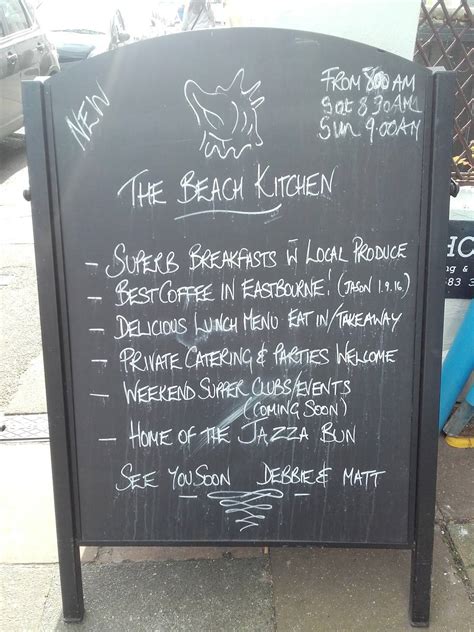 NEW
FROM 800 AM
Sat 8 30AM
Sun 9.00AM
THE BEACH KITCHEN
- SUPERB BREAKFASTS W LOCAL PRODUCE
- BEST COFFEE IN EASTBOURNE! (JASON 1.9.16)
- DELICIOUS LUNCH MENU EAT IN/TAKEAWAY
- PRIVATE CATERING & PARTIES WELCOME
- WEEKEND SUPPER CLUBS/EVENTS
(COMING SOON)
- HOME OF THE JAZZA BUN
SEE YOU SOON DEBBIE & MATT